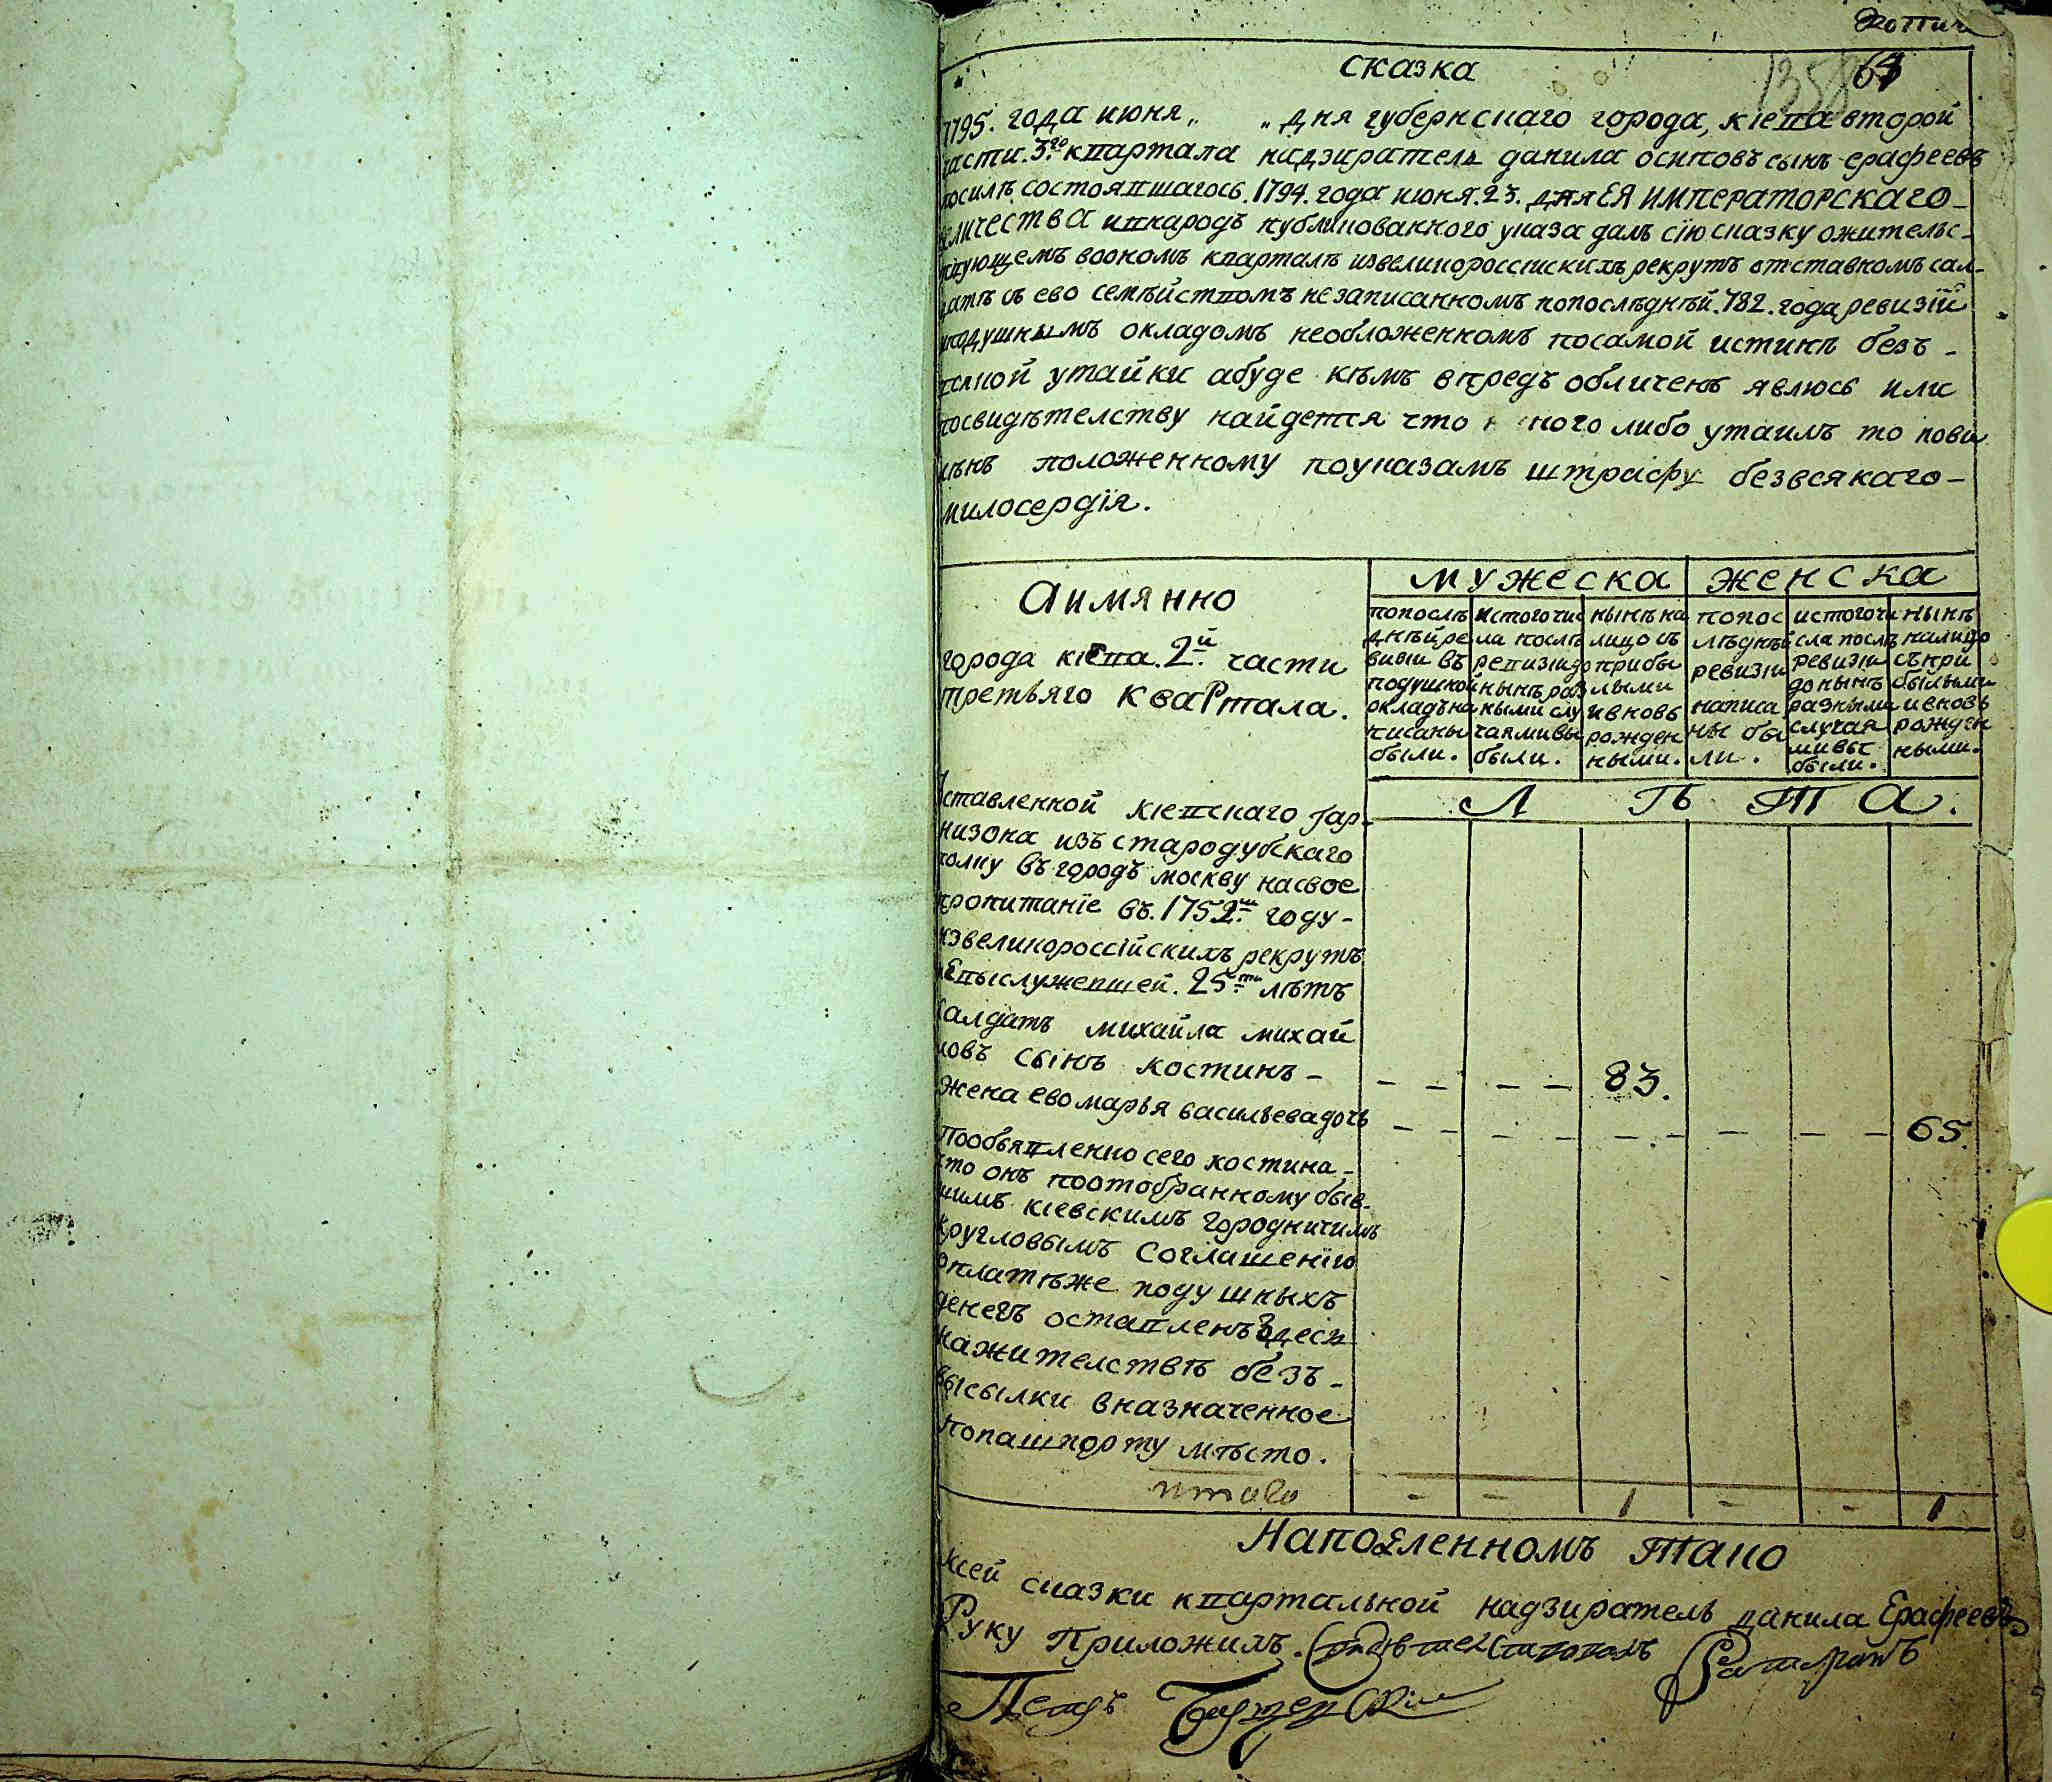 Копия
сказка
1358 64
1795. года июня „ „ дня губернскаго города кіева второй
части 3го квартала надзиратель данила осиповъ сынъ ерафеевъ
посилѣ состоявшагось 1794. года июня 23. дня ЕЯ ИМПЕРАТОРСКАГО
величества ивнародъ публикованного указа далъ сїю сказку ожительс-
твующемъ воономъ кварталѣ извеликороссійскихъ рекрутъ отставномъ сал-
датѣ съ ево семѣйствомъ незаписанномъ попослѣднѣй 782. года ревизїй
иподушнымъ окладомъ необложенномъ посамой истинѣ безъ -
всякой утайки абуде кѣмъ впредъ обличенъ явлюсь или
посвидѣтелству найдется что кого либо утаилъ то пови
ненъ положенному поуказамъ штрафу безвсякаго -
милосердія.
Аимянно
города кіева. 2й части
третьяго квартала.
мужеска женска
попослѣ днѣй ре визіи въ подушной окладъ на писаны были.
истого чис ла послѣ ревизіи до нынѣ раз ными слу чаями вы были.
нынѣ на лицо съ прибы лыми ивновь рожден ными.
попос лѣднѣй ревизіи написа ны бы ли.
истого чи сла послѣ ревизіи до нынѣ разными случая ми вы были.
нынѣ налицо съ при былыми и вновь рожден ными.
Л Ѣ Т А.
ставленной кіевскаго гар-
низона изъ стародубскаго
полку въ городъ москву насвое
пропитанїе въ. 1752м году -
извеликороссійскихъ рекрутъ
невыслужевшей. 25ти лѣтъ
Салдатъ михайла михай
ловъ сынъ костинъ - 83.
жена ево марья васильева дочь 65.
Пообъявленію сего костина -
что онъ поотобранному быв-
шимъ кіевскимъ городничимъ
кругловымъ соглашенїю
оплатѣже подушныхъ
денегъ оставленъ здесь
нажителствѣ безъ -
высылки вназначенное
попашпорту мѣсто.
итого - - 1 - - 1
Наподленномъ тако
ксей сказки квартальной надзиратель данила Ерафеевъ
Руку Приложилъ.